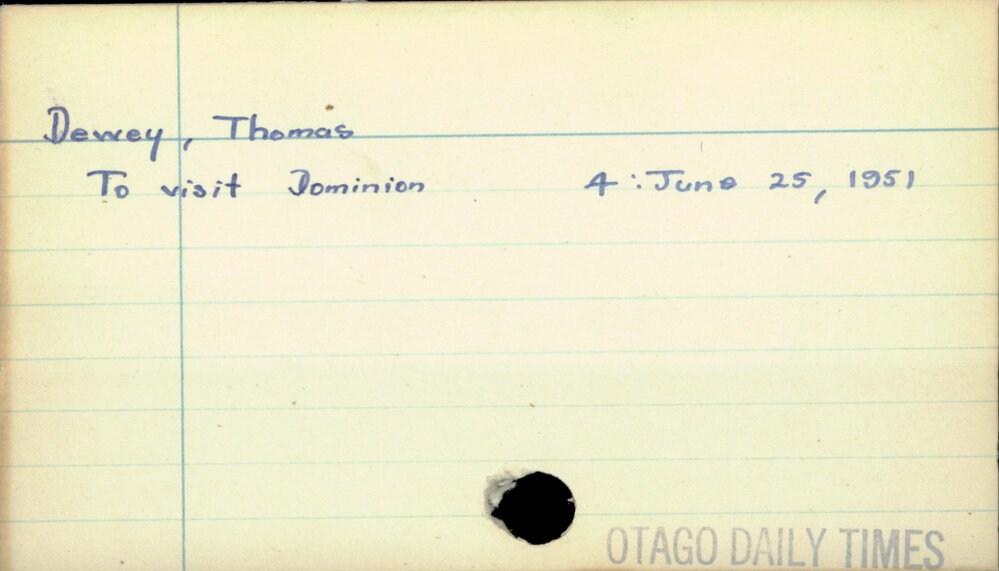 Dewey, Thomas
To visit Dominion 4 : June 25, 1951
OTAGO DAILY TIMES